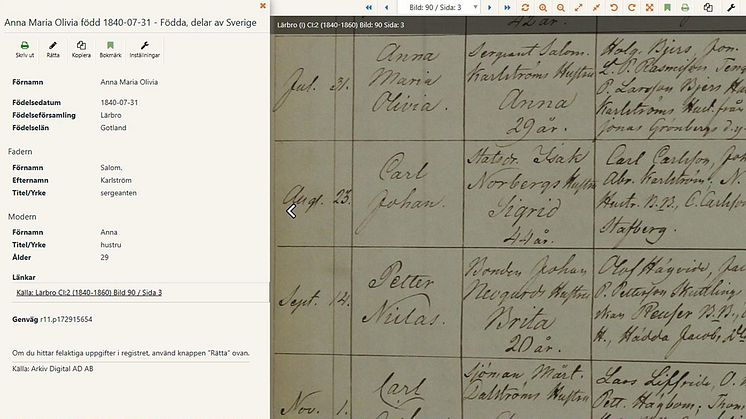 Anna Maria Olivia född 1840-07-31 - Födda, delar av Sverige
Skriv ut
Rätta
Kopiera
Bokmärk
Inställningar
Förnamn Anna Maria Olivia
Födelsedatum 1840-07-31
Födelseförsamling Lärbro
Födelselän Gotland
Fadern
Förnamn Salom.
Efternamn Karlström
Titel/Yrke sergeanten
Modern
Förnamn Anna
Titel/Yrke hustru
Ålder 29
Länkar
Källa: Lärbro CI:2 (1840-1860) Bild 90 / Sida 3
Genväg r11.p172915654
Om du hittar felaktiga uppgifter i registret, använd knappen "Rätta" ovan.
Källa: Arkiv Digital AD AB
Bild: 90 / Sida: 3
Lärbro (I) CI:2 (1840-1860) Bild: 90 Sida: 3
42 år.
Jul. 31.
Anna
Maria
Olivia.
Sergeant Salom.
Karlströms Hustru
Anna
29 år.
Holg. Bjers, Jon.
P. Larsson Bjers
Karlströms Hust. från
Jonas Grönbergs
Aug. 23.
Carl
Johan.
Statsdr. Isak
Norbergs Hustru
Sigrid
44 år.
Carl Carlsson,
Abr. Karlström. N.
Hustr. B.B., C. Carlsson
Stafberg.
Sept. 14.
Petter
Niclas.
Bonden Johan
Hustru
Brita
20 år.
Olof
P. Petterson
B.B.,
H., Hadda Jacobs,
Nov. 1.
Carl
Sjöman Mårt.
Dalströms Hustru
Lars
Pett. Hägbom, Thom